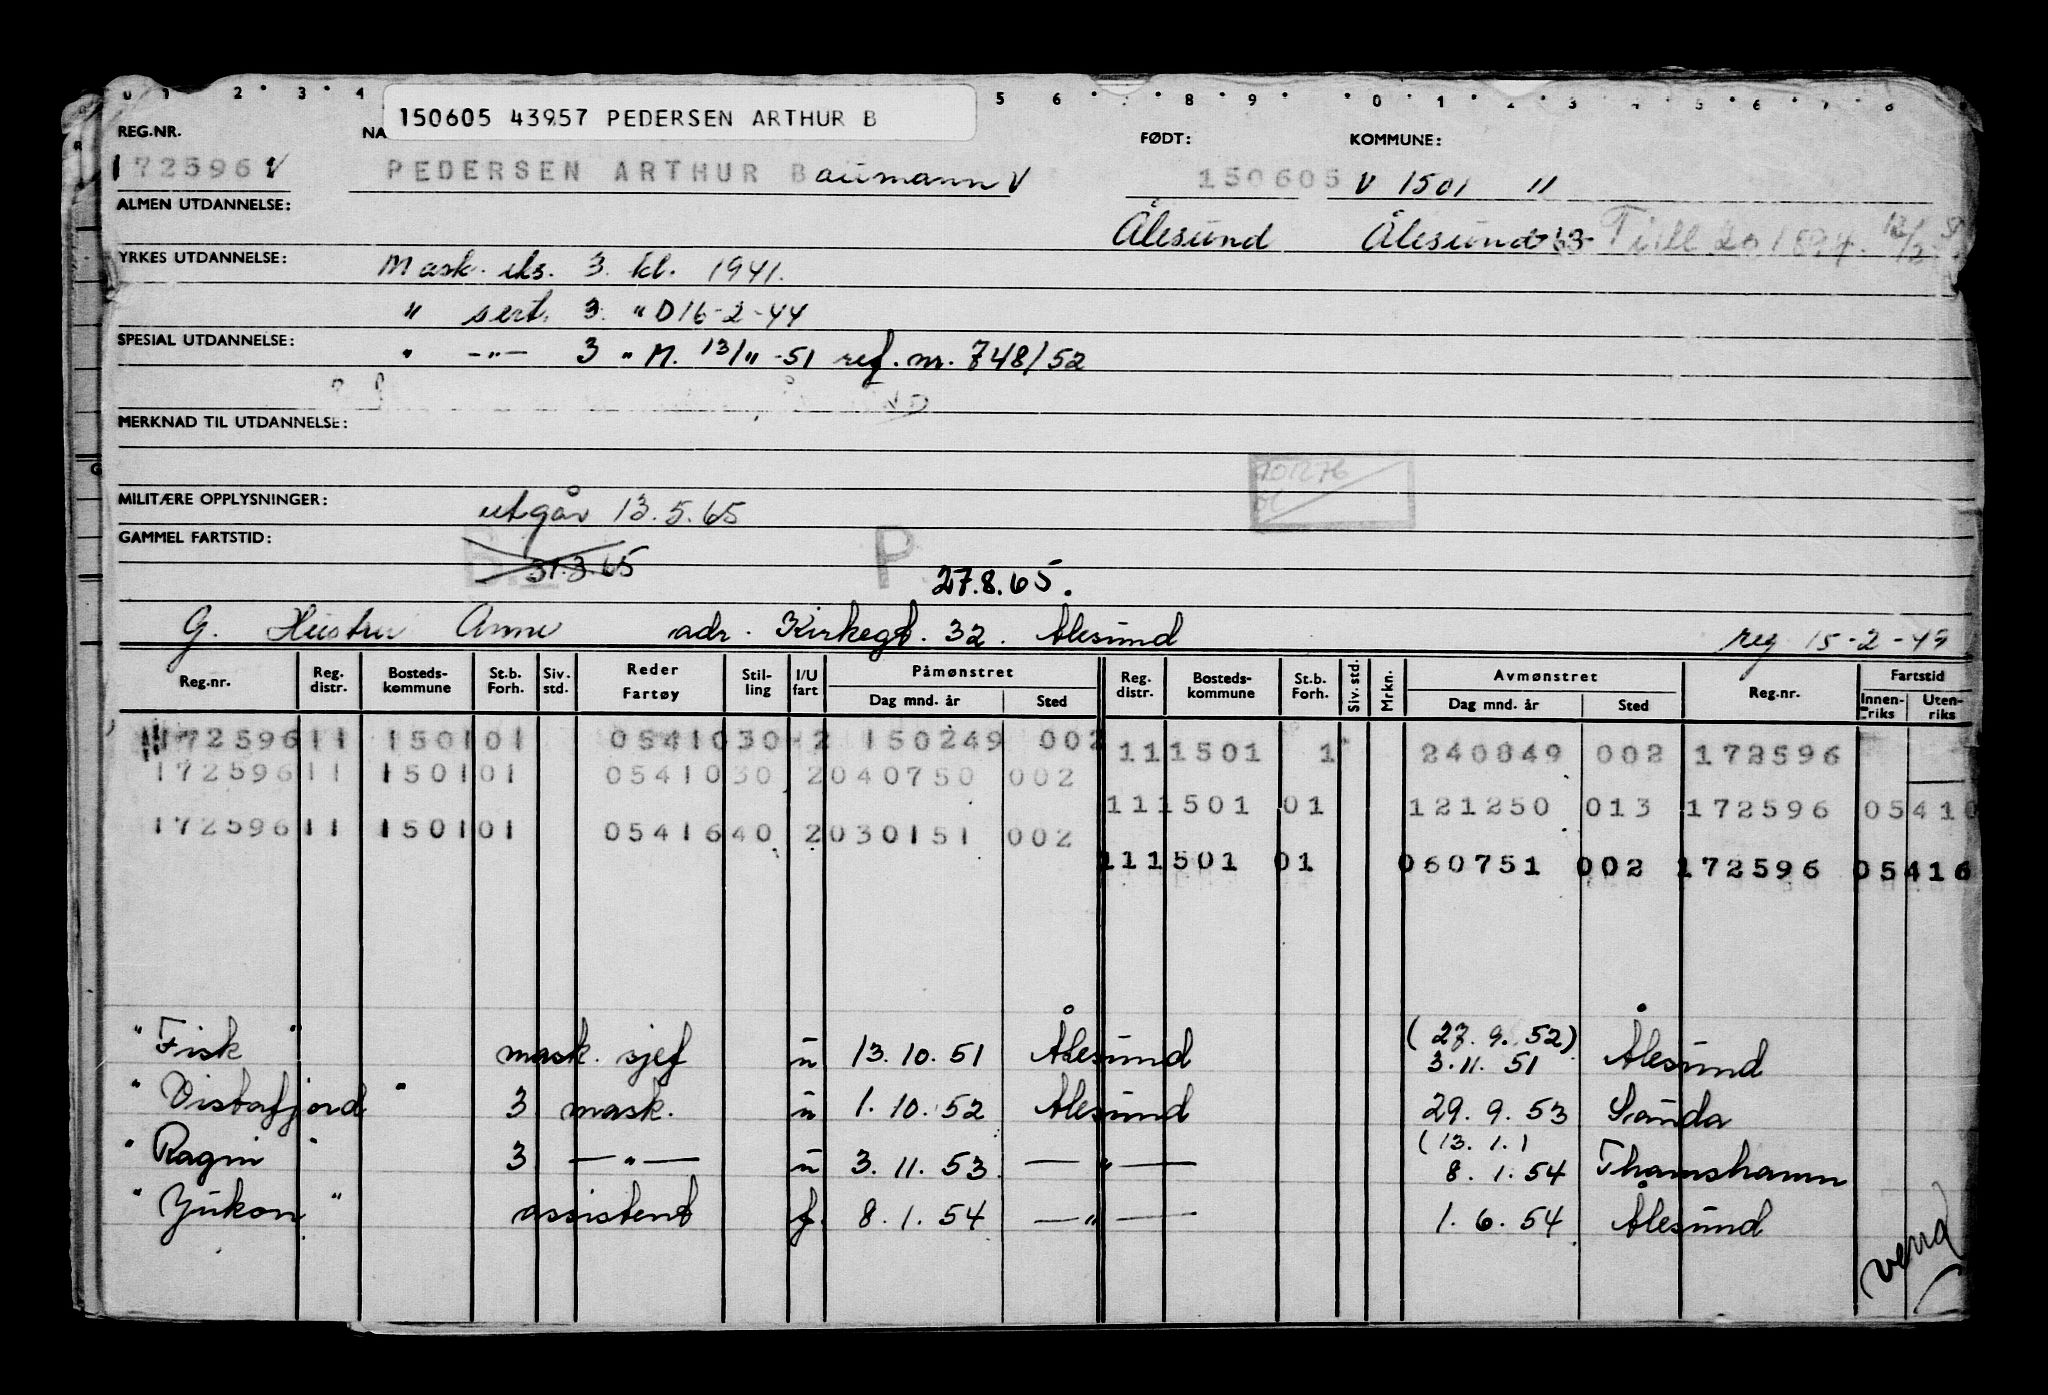 150605 43957 PEDERSEN ARTHUR B
0 1 2 3 4 5 6 8 9 0 1 2 3 4 5 6 7 8
REG.NR. NA FØDT: KOMMUNE:
172596 V PEDERSEN ARTHUR Baumann V 150605 V 1501 "
ALMEN UTDANNELSE: Ålesund Ålesund
YRKES UTDANNELSE: Mask. eks. 3. kl. 1941.
" sert. 3. " D 16-2-44
SPESIAL UTDANNELSE: " -"- 3 " M. 13/11-51 ref. nr. 748/52
MERKNAD TIL UTDANNELSE:
MILITÆRE OPPLYSNINGER: utgår 13.5.65
GAMMEL FARTSTID:
31.3.65 P 27.8.65.
G. Hustru Anne adr. Kirkegt. 32. Ålesund reg 15-2-49
Reg.nr. Reg. distr. Bosteds-kommune St.b. Forh. Siv. std. Reder Fartøy Stil-ling I/U fart Påmønstret Dag mnd. år Sted Reg. distr. Bosteds-kommune St.b. Forh. Siv. std. Mrkn. Avmønstret Dag mnd. år Sted Reg.nr. Fartstid Innen-riks Uten-riks
172596 11 1501 01 05410 30 2 150249 002 11 1501 1 240849 002 172596
172596 11 1501 01 05410 30 2 040750 002
11 1501 01 121250 013 172596 05410
172596 11 1501 01 05416 40 2 030151 002
11 1501 01 060751 002 172596 05416
"Fisk" mask. sjef u 13.10.51 Ålesund (27.9.52) 3.11.51 Ålesund
"Vistafjord" 3 mask. u 1.10.52 Ålesund 29.9.53 Sauda
"Ragni" 3 —"— u 3.11.53. —"— (13.1.) 8.1.54 Thamshamn
"Yukon" assistent f. 8.1.54 —"— 1.6.54 Ålesund
vend